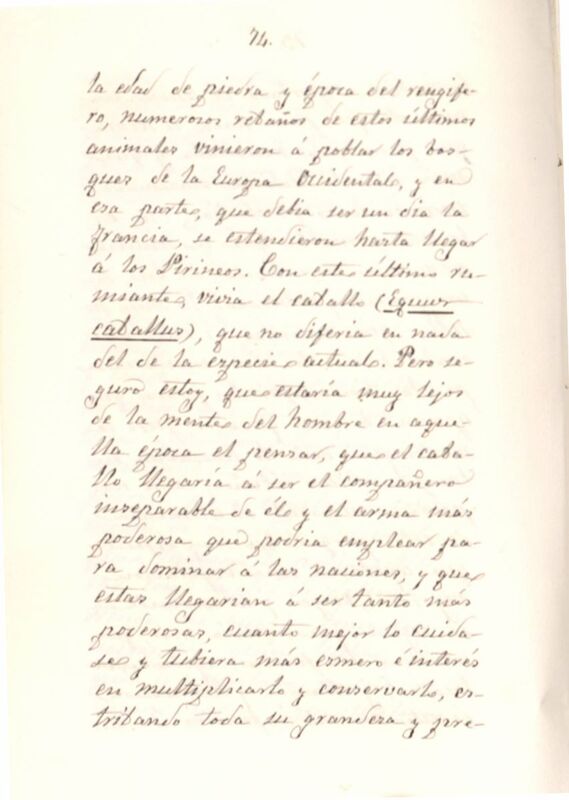 74.
la edad de piedra y época del rengife-
ro, numerosos rebaños de estos últimos
animales vinieron á poblar los bos-
ques de la Europa Occidental, y en
esa parte, que debia ser un dia la
francia, se estendieron hasta llegar
á los Pirineos. Con este último ru-
miante, vivia el caballo (Equus
caballus), que no diferia en nada
del de la especie actual. Pero se-
guro estoy, que estaría muy lejos
de la mente del hombre en aque-
lla época el pensar, que el caba-
llo llegaría á ser el compañero
inseparable de él y el arma más
poderosa que podria emplear pa-
ra dominar á las naciones, y que
estas llegarian á ser tanto más
poderosas, cuanto mejor lo cuida-
se y tubiera más esmero é interés
en multiplicarlo y conservarlo, es-
tribando toda su grandeza y pre-